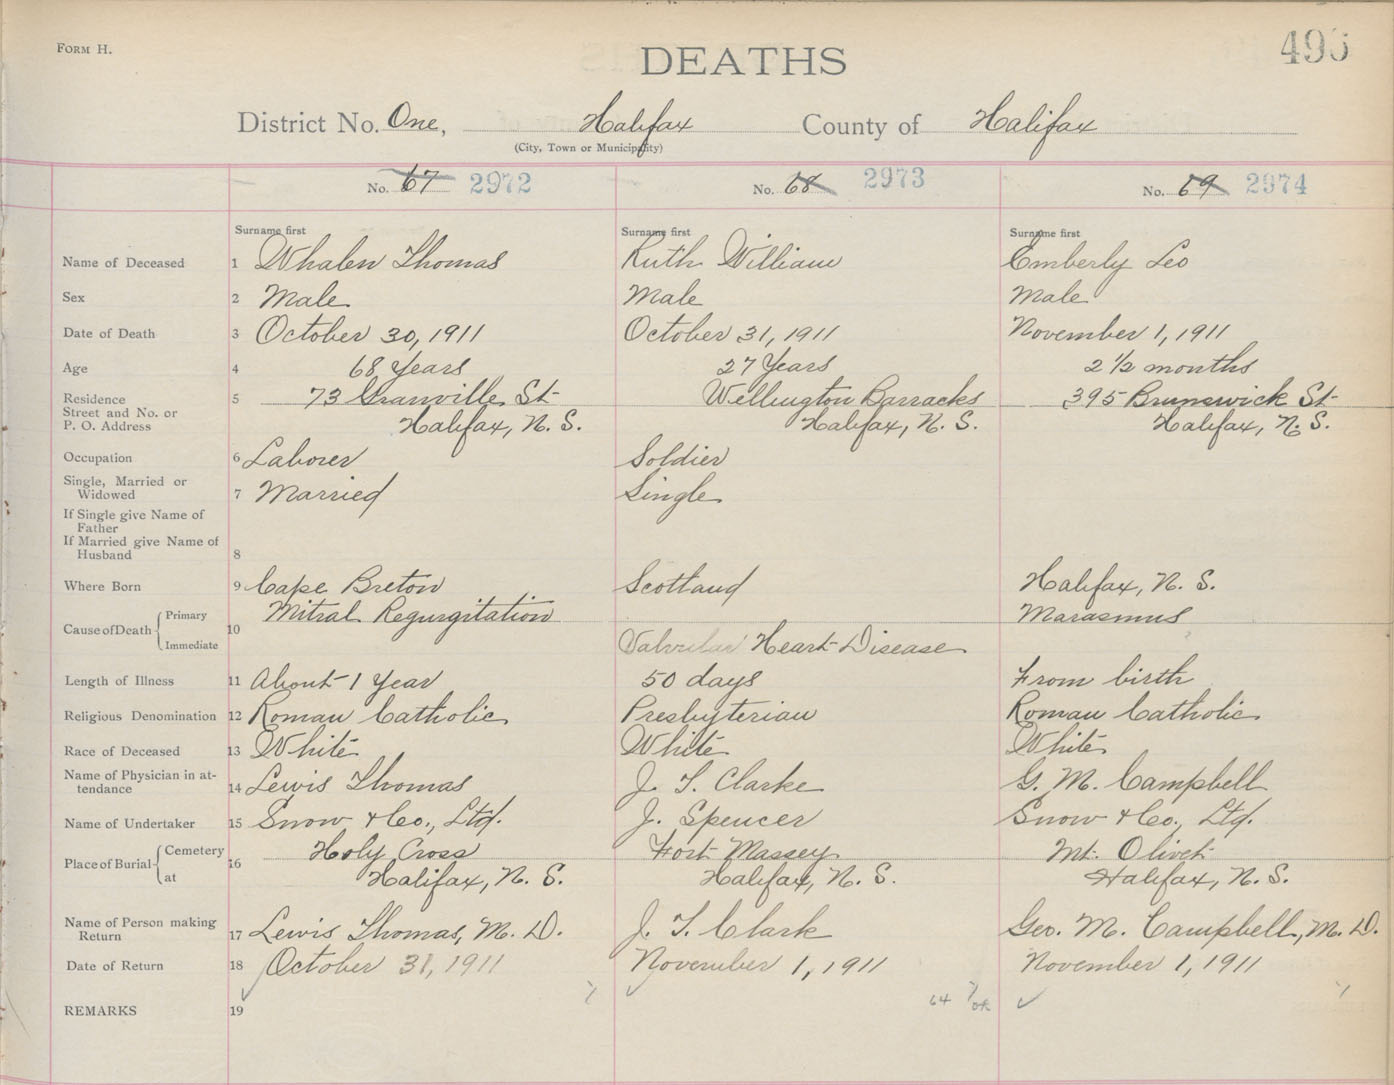 FORM H.
DEATHS
495
District No. One, Halifax County of Halifax
(City, Town or Municipality)
No. 67 2972 No. 68 2973 No. 69 2974
Surname first Surname first Surname first
Name of Deceased 1 Whalen Thomas Ruth William Emberly Leo
Sex 2 Male Male Male
Date of Death 3 October 30, 1911 October 31, 1911 November 1, 1911
Age 4 68 Years 27 Years 2 1/2 months
Residence 5 73 Granville St Wellington Barracks 395 Brunswick St
Street and No. or
P. O. Address Halifax, N. S. Halifax, N. S. Halifax, N. S.
Occupation 6 Laborer Soldier
Single, Married or
Widowed 7 Married Single
If Single give Name of
Father
If Married give Name of
Husband 8
Where Born 9 Cape Breton Scotland Halifax, N. S.
Primary Mitral Regurgitation Marasmus
Cause of Death 10
Immediate Valvular Heart Disease
Length of Illness 11 About 1 Year 50 days From birth
Religious Denomination 12 Roman Catholic Presbyterian Roman Catholic
Race of Deceased 13 White White White
Name of Physician in at-
tendance 14 Lewis Thomas J. T. Clarke G. M. Campbell
Name of Undertaker 15 Snow & Co., Ltd. J. Spencer Snow & Co., Ltd.
Cemetery Holy Cross Fort Massey Mt. Olivet
Place of Burial 16
at Halifax, N. S. Halifax, N. S. Halifax, N. S.
Name of Person making
Return 17 Lewis Thomas, M. D. J. T. Clark Geo. M. Campbell, M. D.
Date of Return 18 October 31, 1911 November 1, 1911 November 1, 1911
64
REMARKS 19